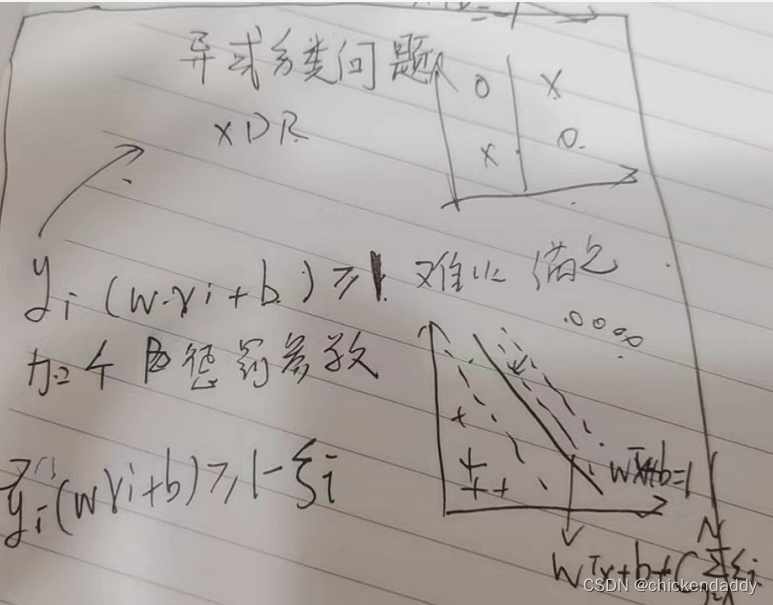 异或分类问题
XDR
O X
X O
yᵢ(w·xᵢ+b)≥1 难以满足
加个 惩罚参数
yᵢ(wxᵢ+b)≥1-ξᵢ
wᵀx+b=1
wᵀx+b+C∑ξᵢ
CSDN @chickendaddy